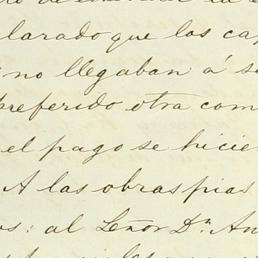 clarado que las ca
no llegaban á s
preferido otra com
el pago se hicie
A las obras pias
os: al Señor Dn. An